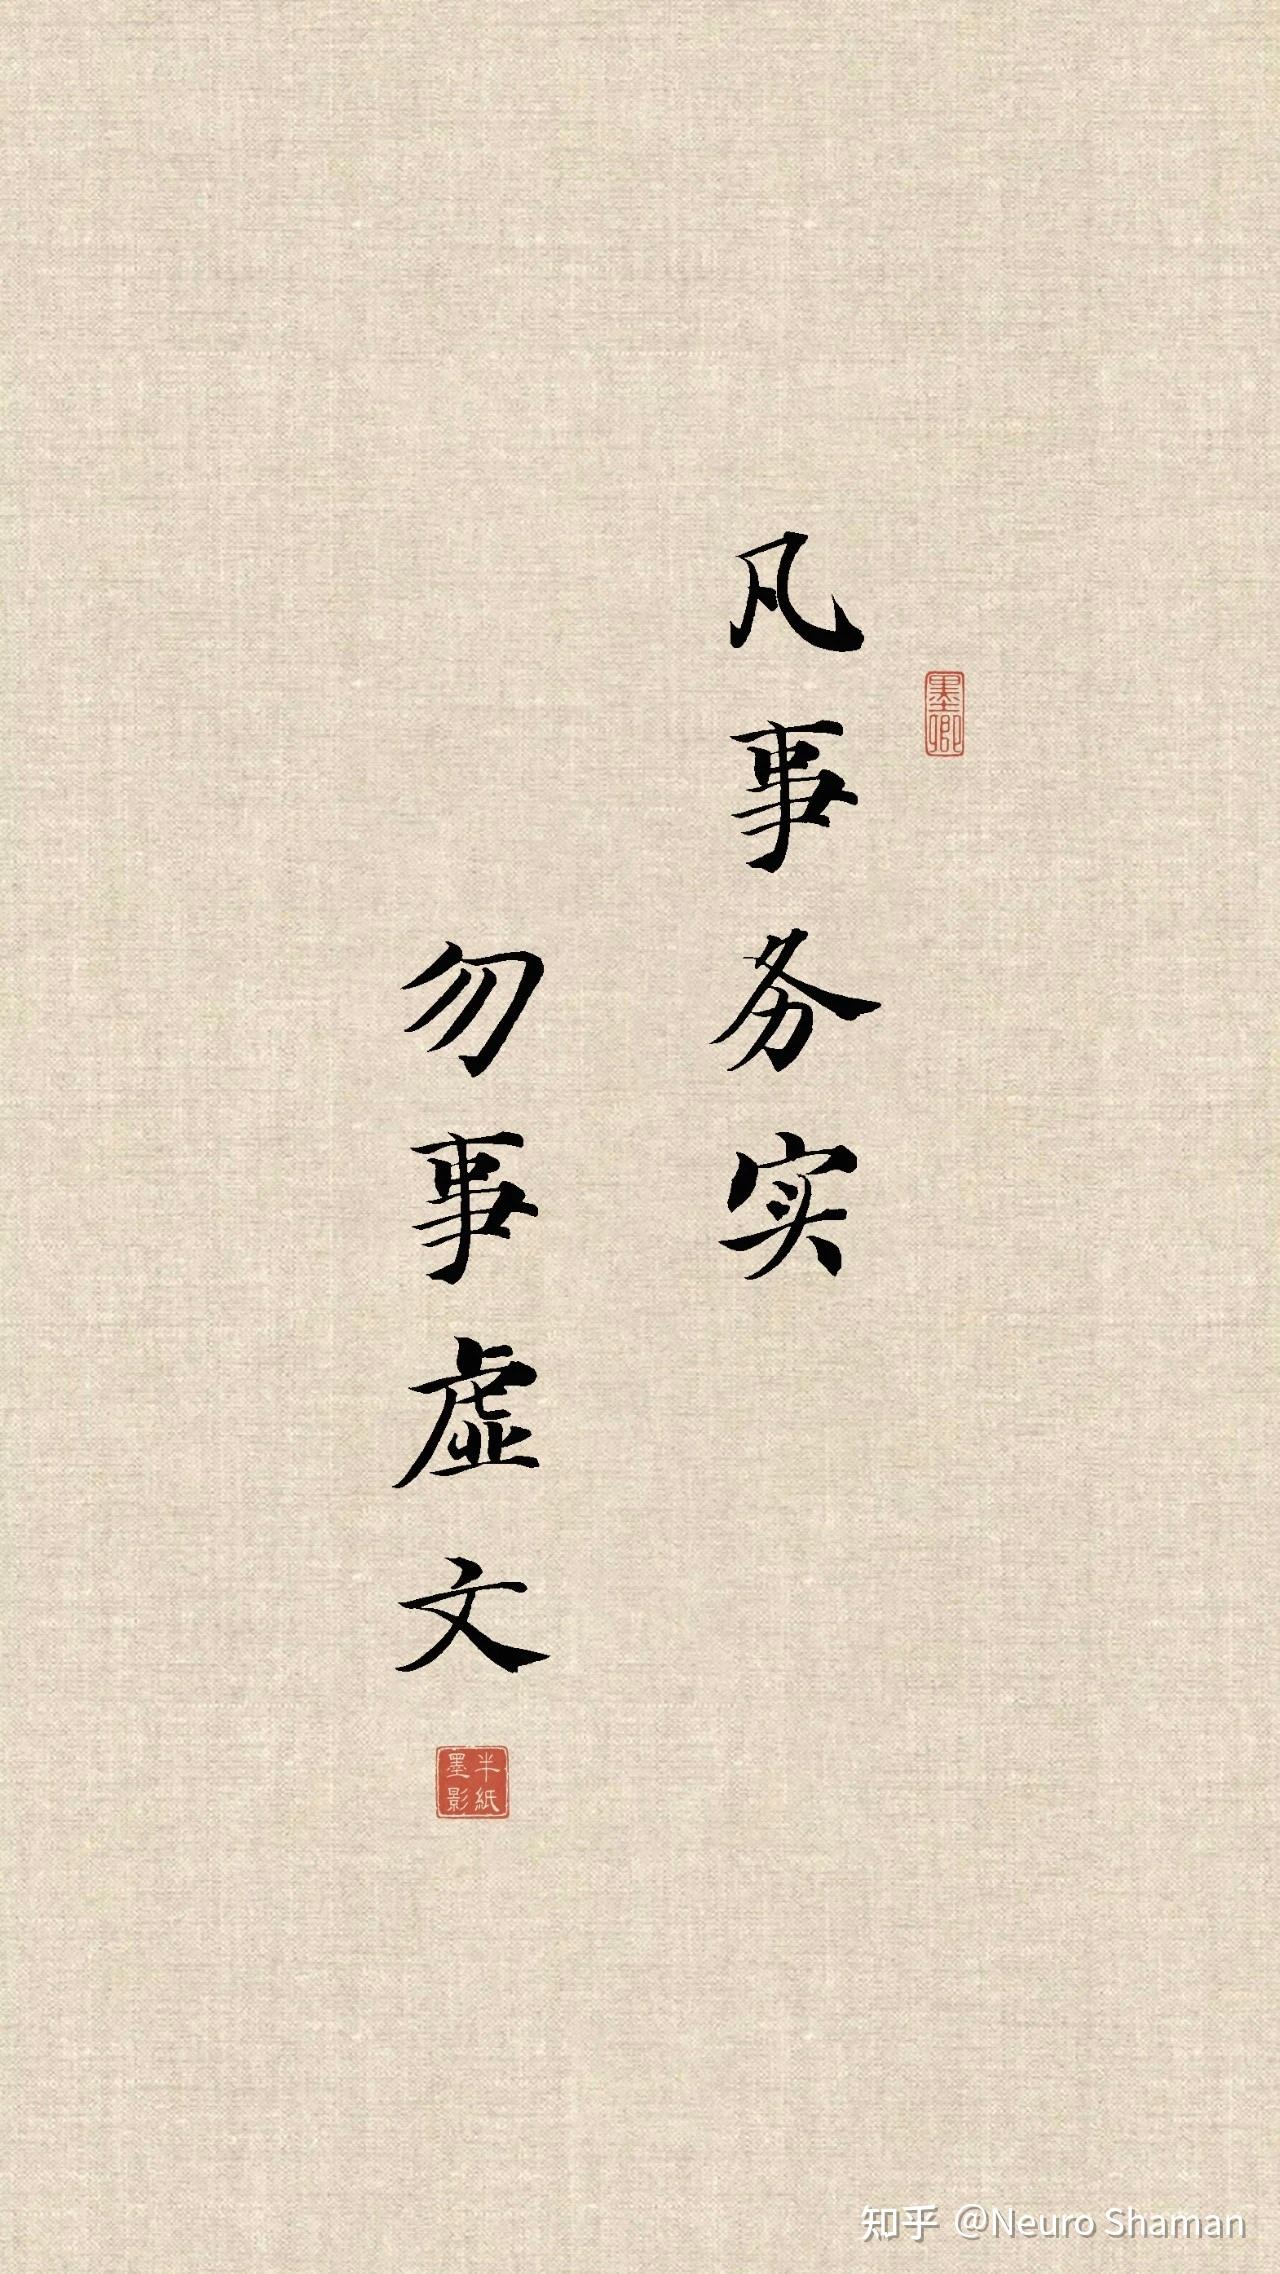 凡事务实
勿事虚文
墨卿
半紙
墨影
知乎 @Neuro Shaman